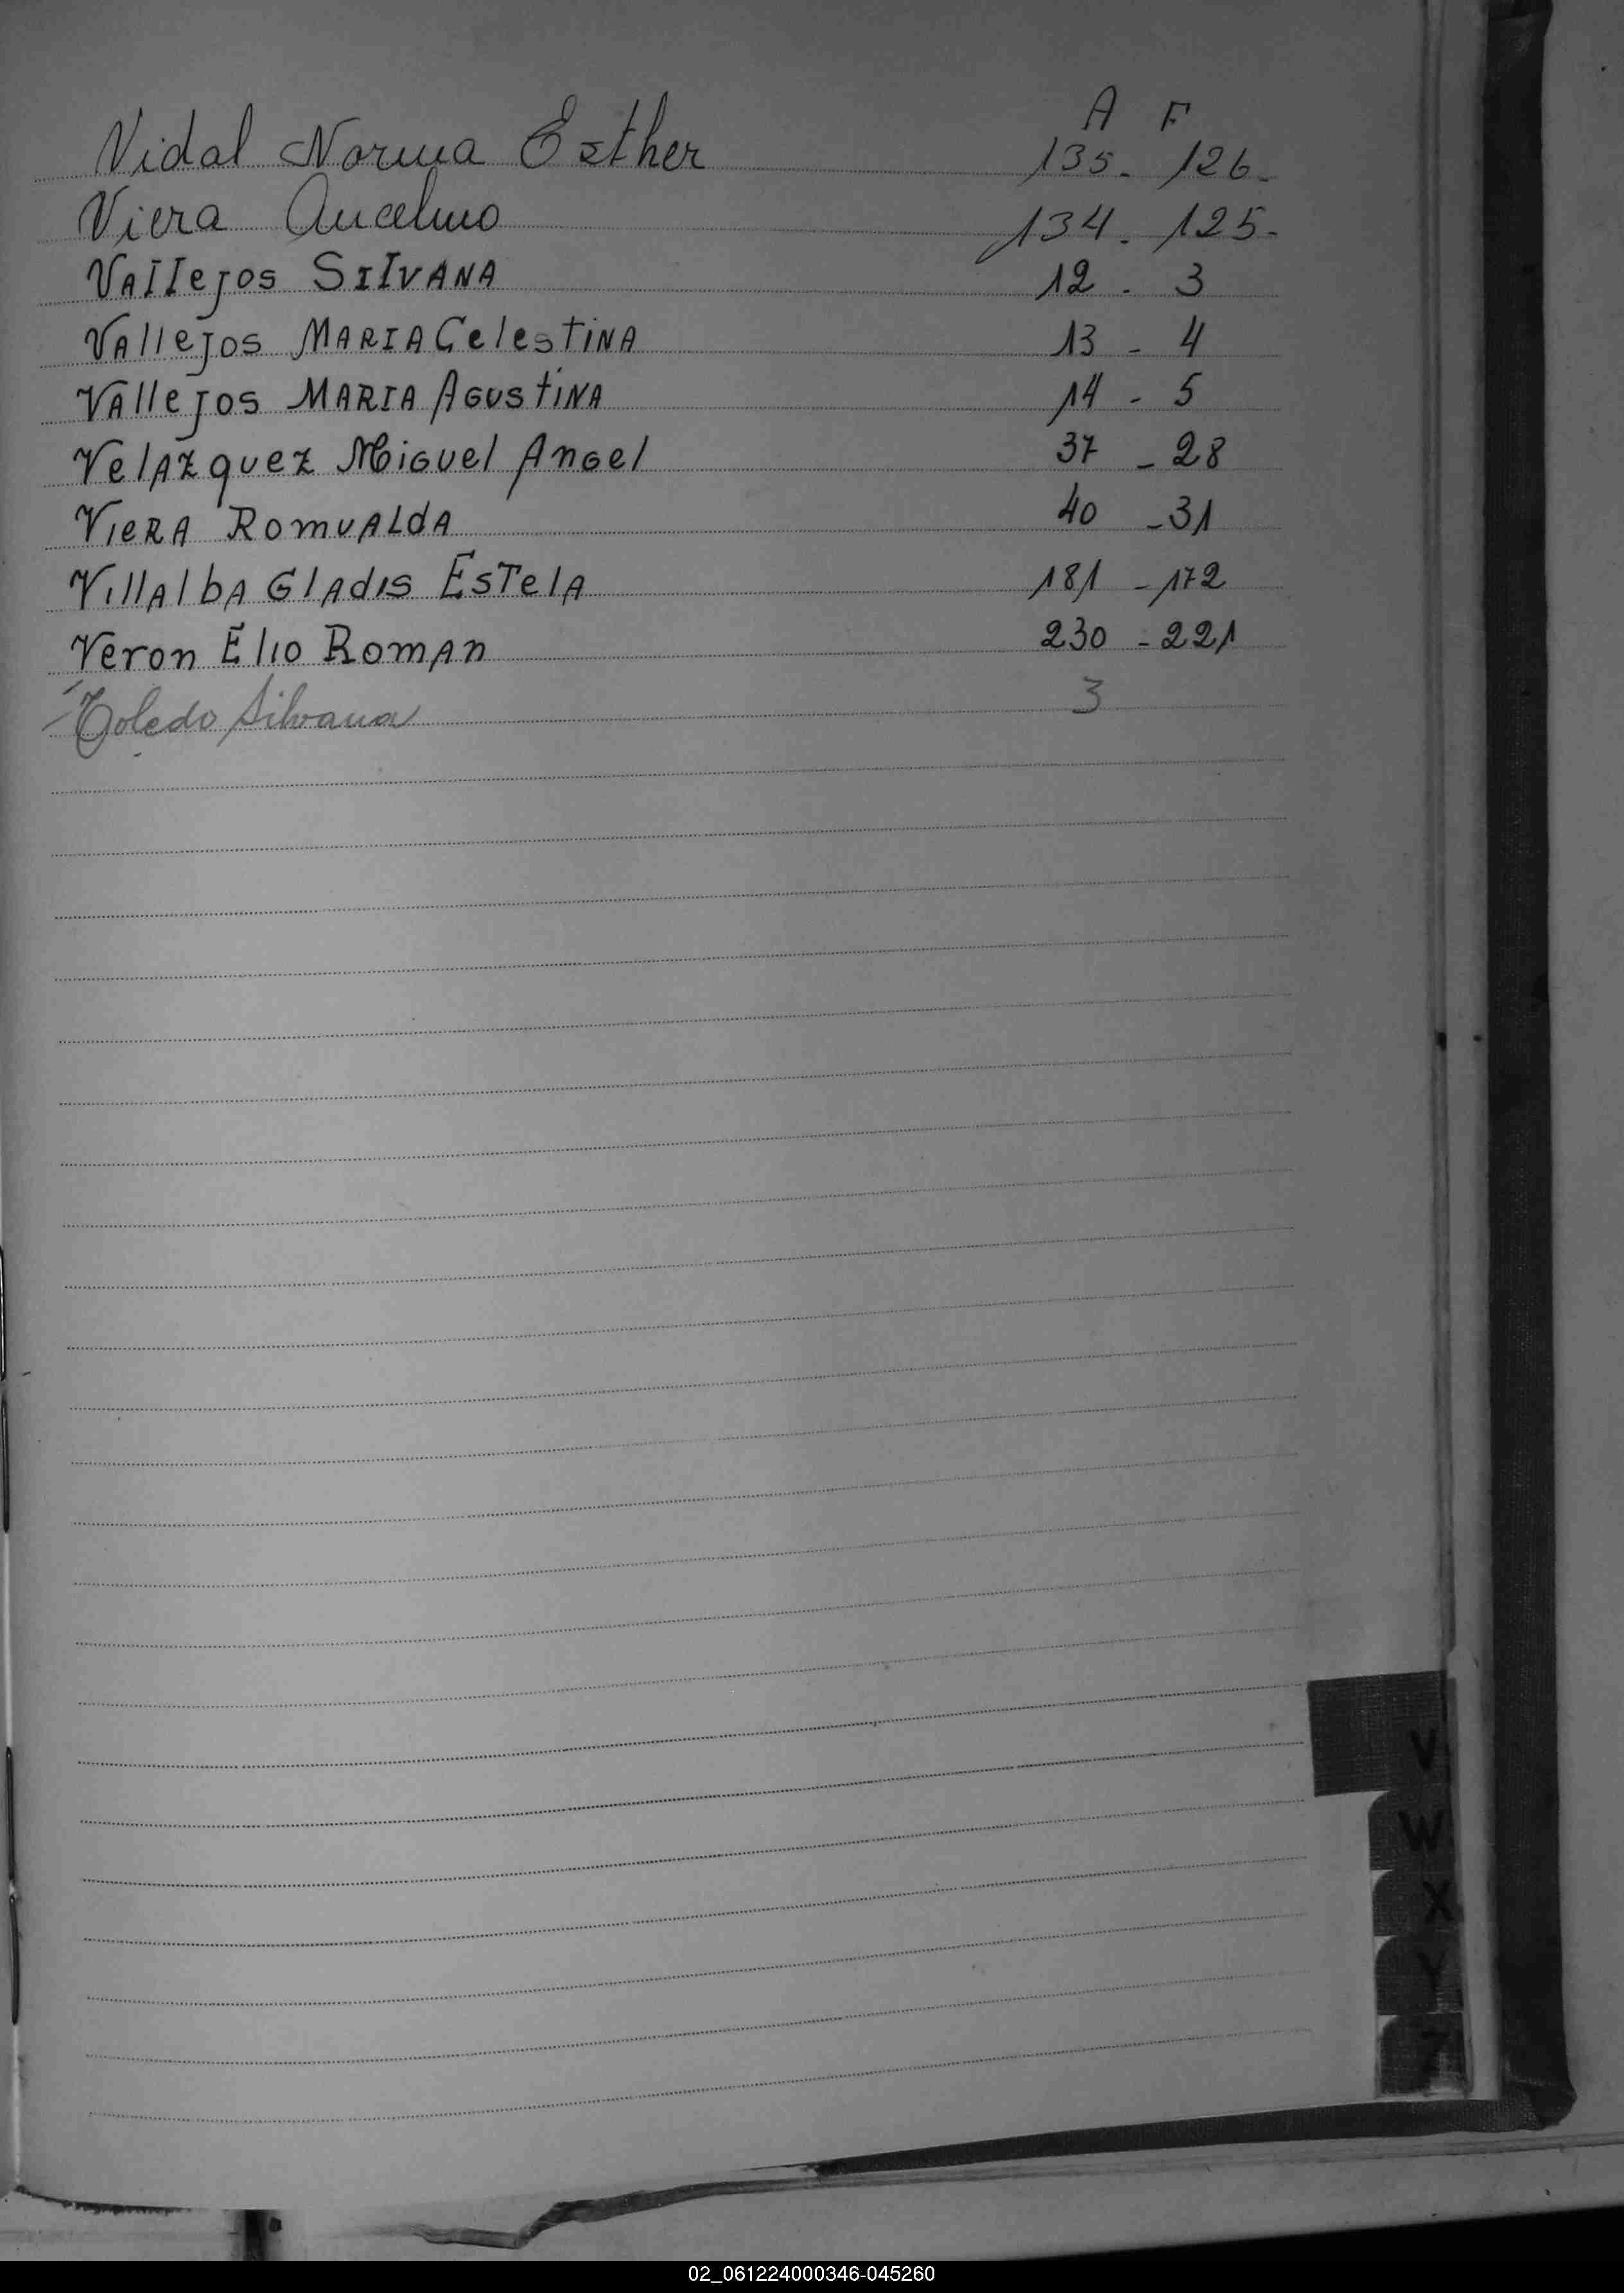 A F
Vidal Norma Esther 135. 126.
Viera Ancelmo 134. 125-
VAllejos SilvANA 12 - 3
VAllejos MARIA CelestiNA 13 - 4
VAllejos MARIA AGustiNA 14 - 5
VelAzquez MiGuel AnGel 37 - 28
VieRA RomuALdA 40 - 31
VillAlbA GlAdis EsTelA 181 - 172
Veron Elio RomAn 230 - 221
Toledo Silvana 3
V
W
X
Y
Z
02_061224000346-045260